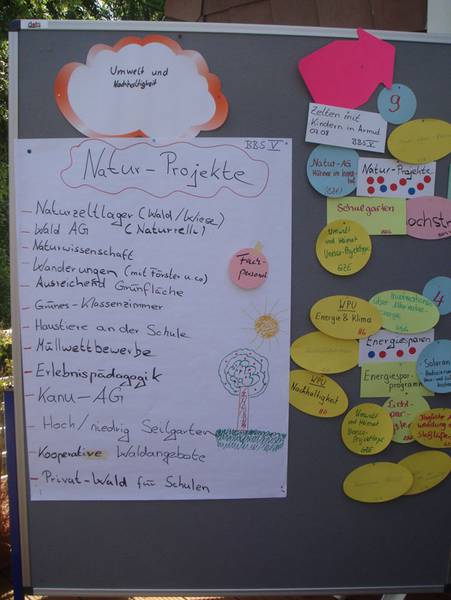 Umwelt und
Nachhaltigkeit
BBS V
Natur-Projekte
- Naturzeltlager (Wald/Wiese)
- Wald AG (Naturell)
- Naturwissenschaft
- Wanderungen (mit Förster u.co)
- Ausreichend Grünfläche
- Grünes-Klassenzimmer
- Haustiere an der Schule
- Müllwettbewerbe
- Erlebnispädagogik
- Kanu-AG
- Hoch/niedrig Seilgarten
- Kooperative Waldangebote
- Privat-Wald für Schulen
Fach-
personal
9
Zelten mit
Kindern in Armut
07.08
BBS V
Natur-AG
Natur-Projekte
Schulgarten
Hochstr
Umwelt
und Heimat
Unesco-Projekttage
GZE
4
WPU
Energie & Klima
Informationen
über Alternative
Energie
Energiesparen
Energiespar
programm
Solaran
WPU
Nachhaltigkeit
Umwelt
und Heimat
Unesco-
Projekttage
GZE